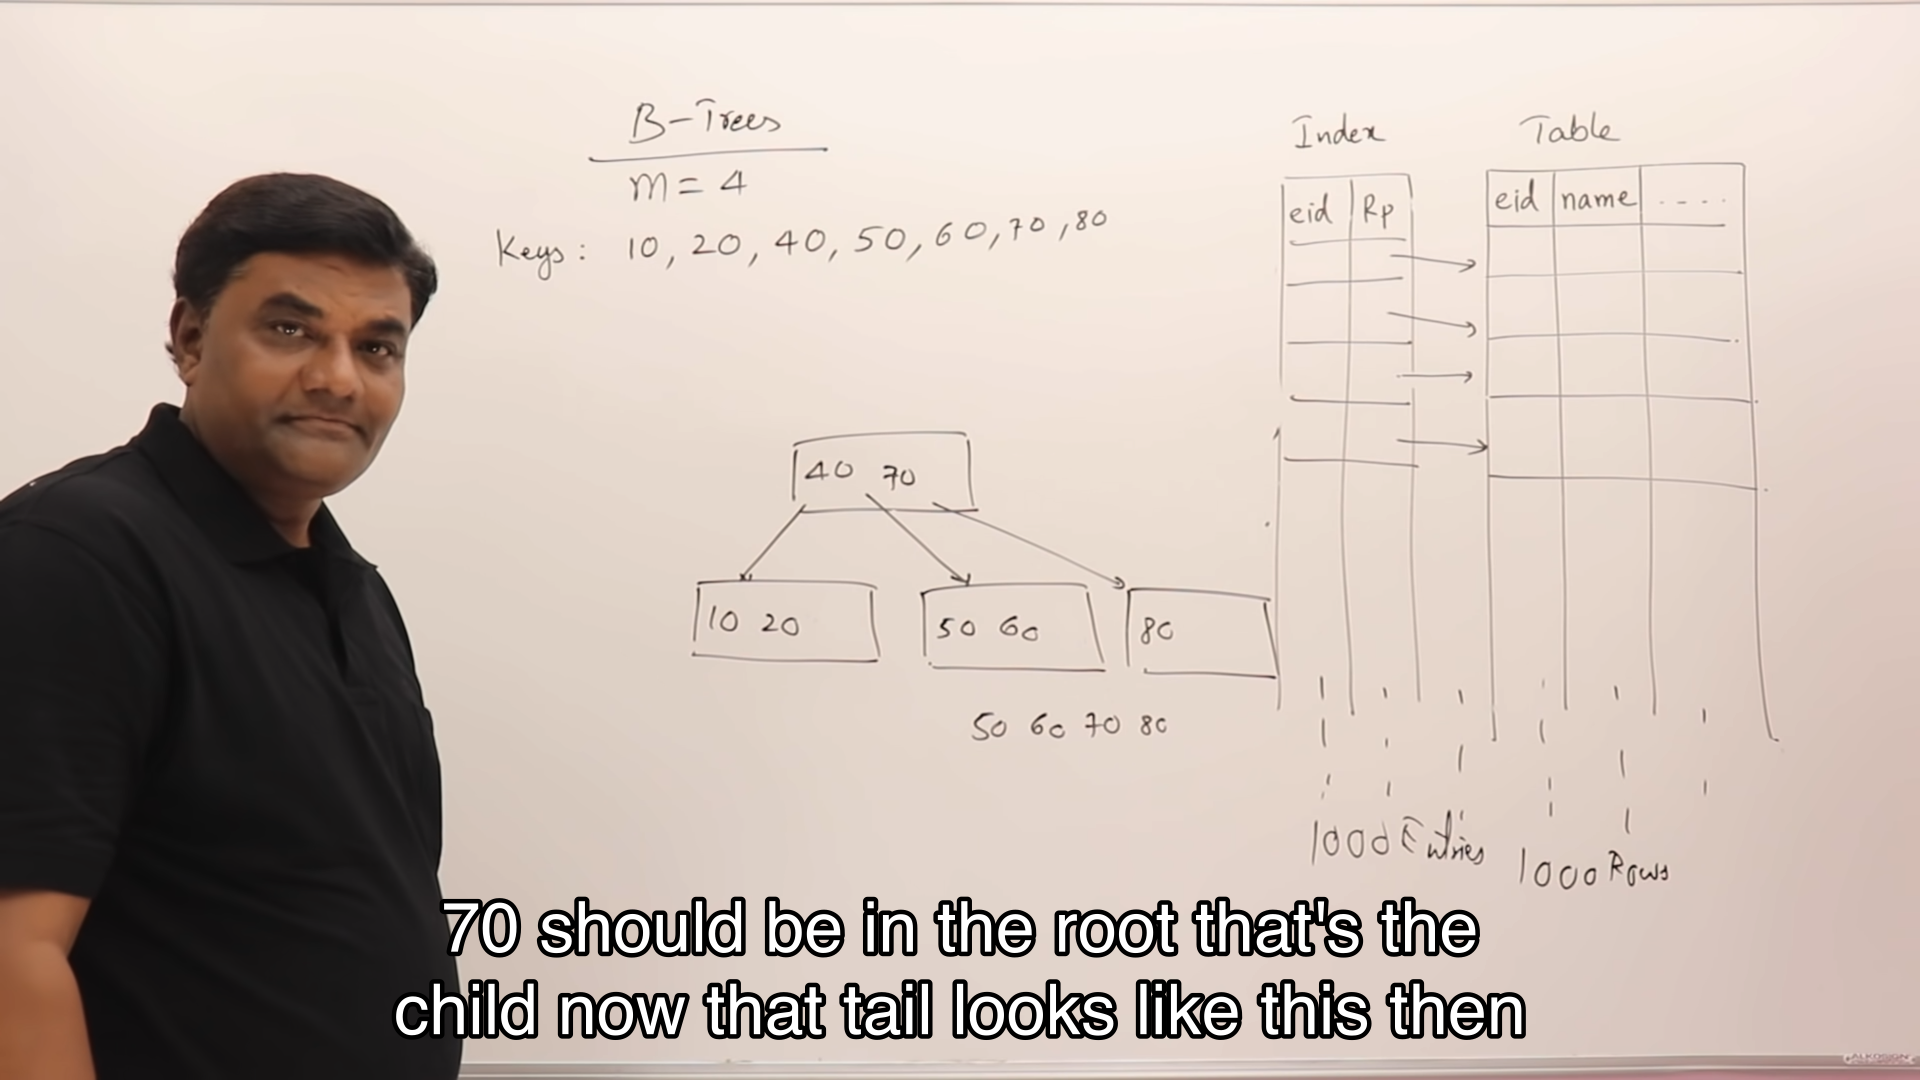 B-Trees
m = 4
Keys: 10, 20, 40, 50, 60, 70, 80
40 70
10 20
50 60
80
50 60 70 80
Index
eid Rp
1000 Entries
Table
eid name ....
1000 Rows
70 should be in the root that's the
child now that tail looks like this then